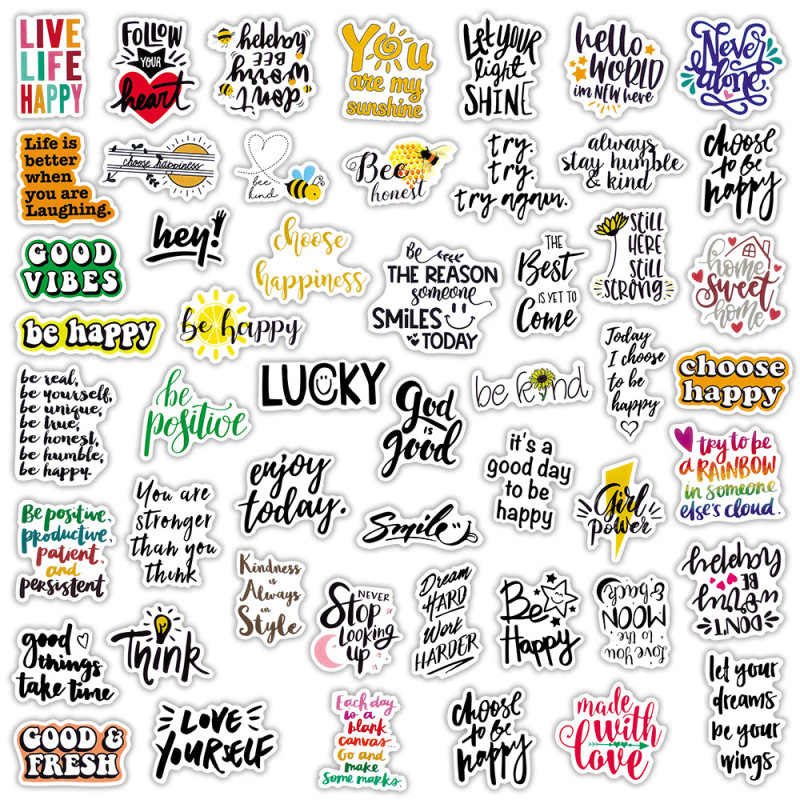 LIVE
LIFE
HAPPY
FOLLOW
YOUR
heart
don't
worry
BEE
happy
You
are my
sunshine
Let YOUR
light
SHINE
hello
WORLD
im NEW here
Never
alone.
Life is
better
when
you are
Laughing.
choose happiness
bee
kind
Bee
honest
try.
try.
try again.
always
stay humble
& kind
choose
to be
happy
GOOD
VIBES
hey!
choose
happiness
Be
THE REASON
someone
SMiLES
TODAY
THE
Best
IS YET TO
Come
STiLL
HERE
STiLL
STRONG
home
sweet
home
be happy
be happy
Today
I choose
to be
happy
be real,
be yourself,
be unique,
be true,
be honest,
be humble,
be happy.
be
positive
LUCKY
God
is
good
be kind
choose
happy
enjoy
today.
it's a
good day
to be
happy
try to be
a RAINBOW
in someone
else's cloud.
Be positive,
productive,
patient,
and
persistent
You are
stronger
than you
think
Smile
Girl
Power
Kindness
is
Always
in
Style
NEVER
Stop
Looking
up
Dream
HARD
Work
HARDER
Be
Happy
Love you
to the
MOON
& back
DON'T
worry
BE
happy
good
things
take time
Think
let your
dreams
be your
wings
GOOD &
FRESH
LOVE
YOURSELF
Each day
is a
blank
canvas...
Go and
make
some marks.
choose
to be
happy
made
with
love